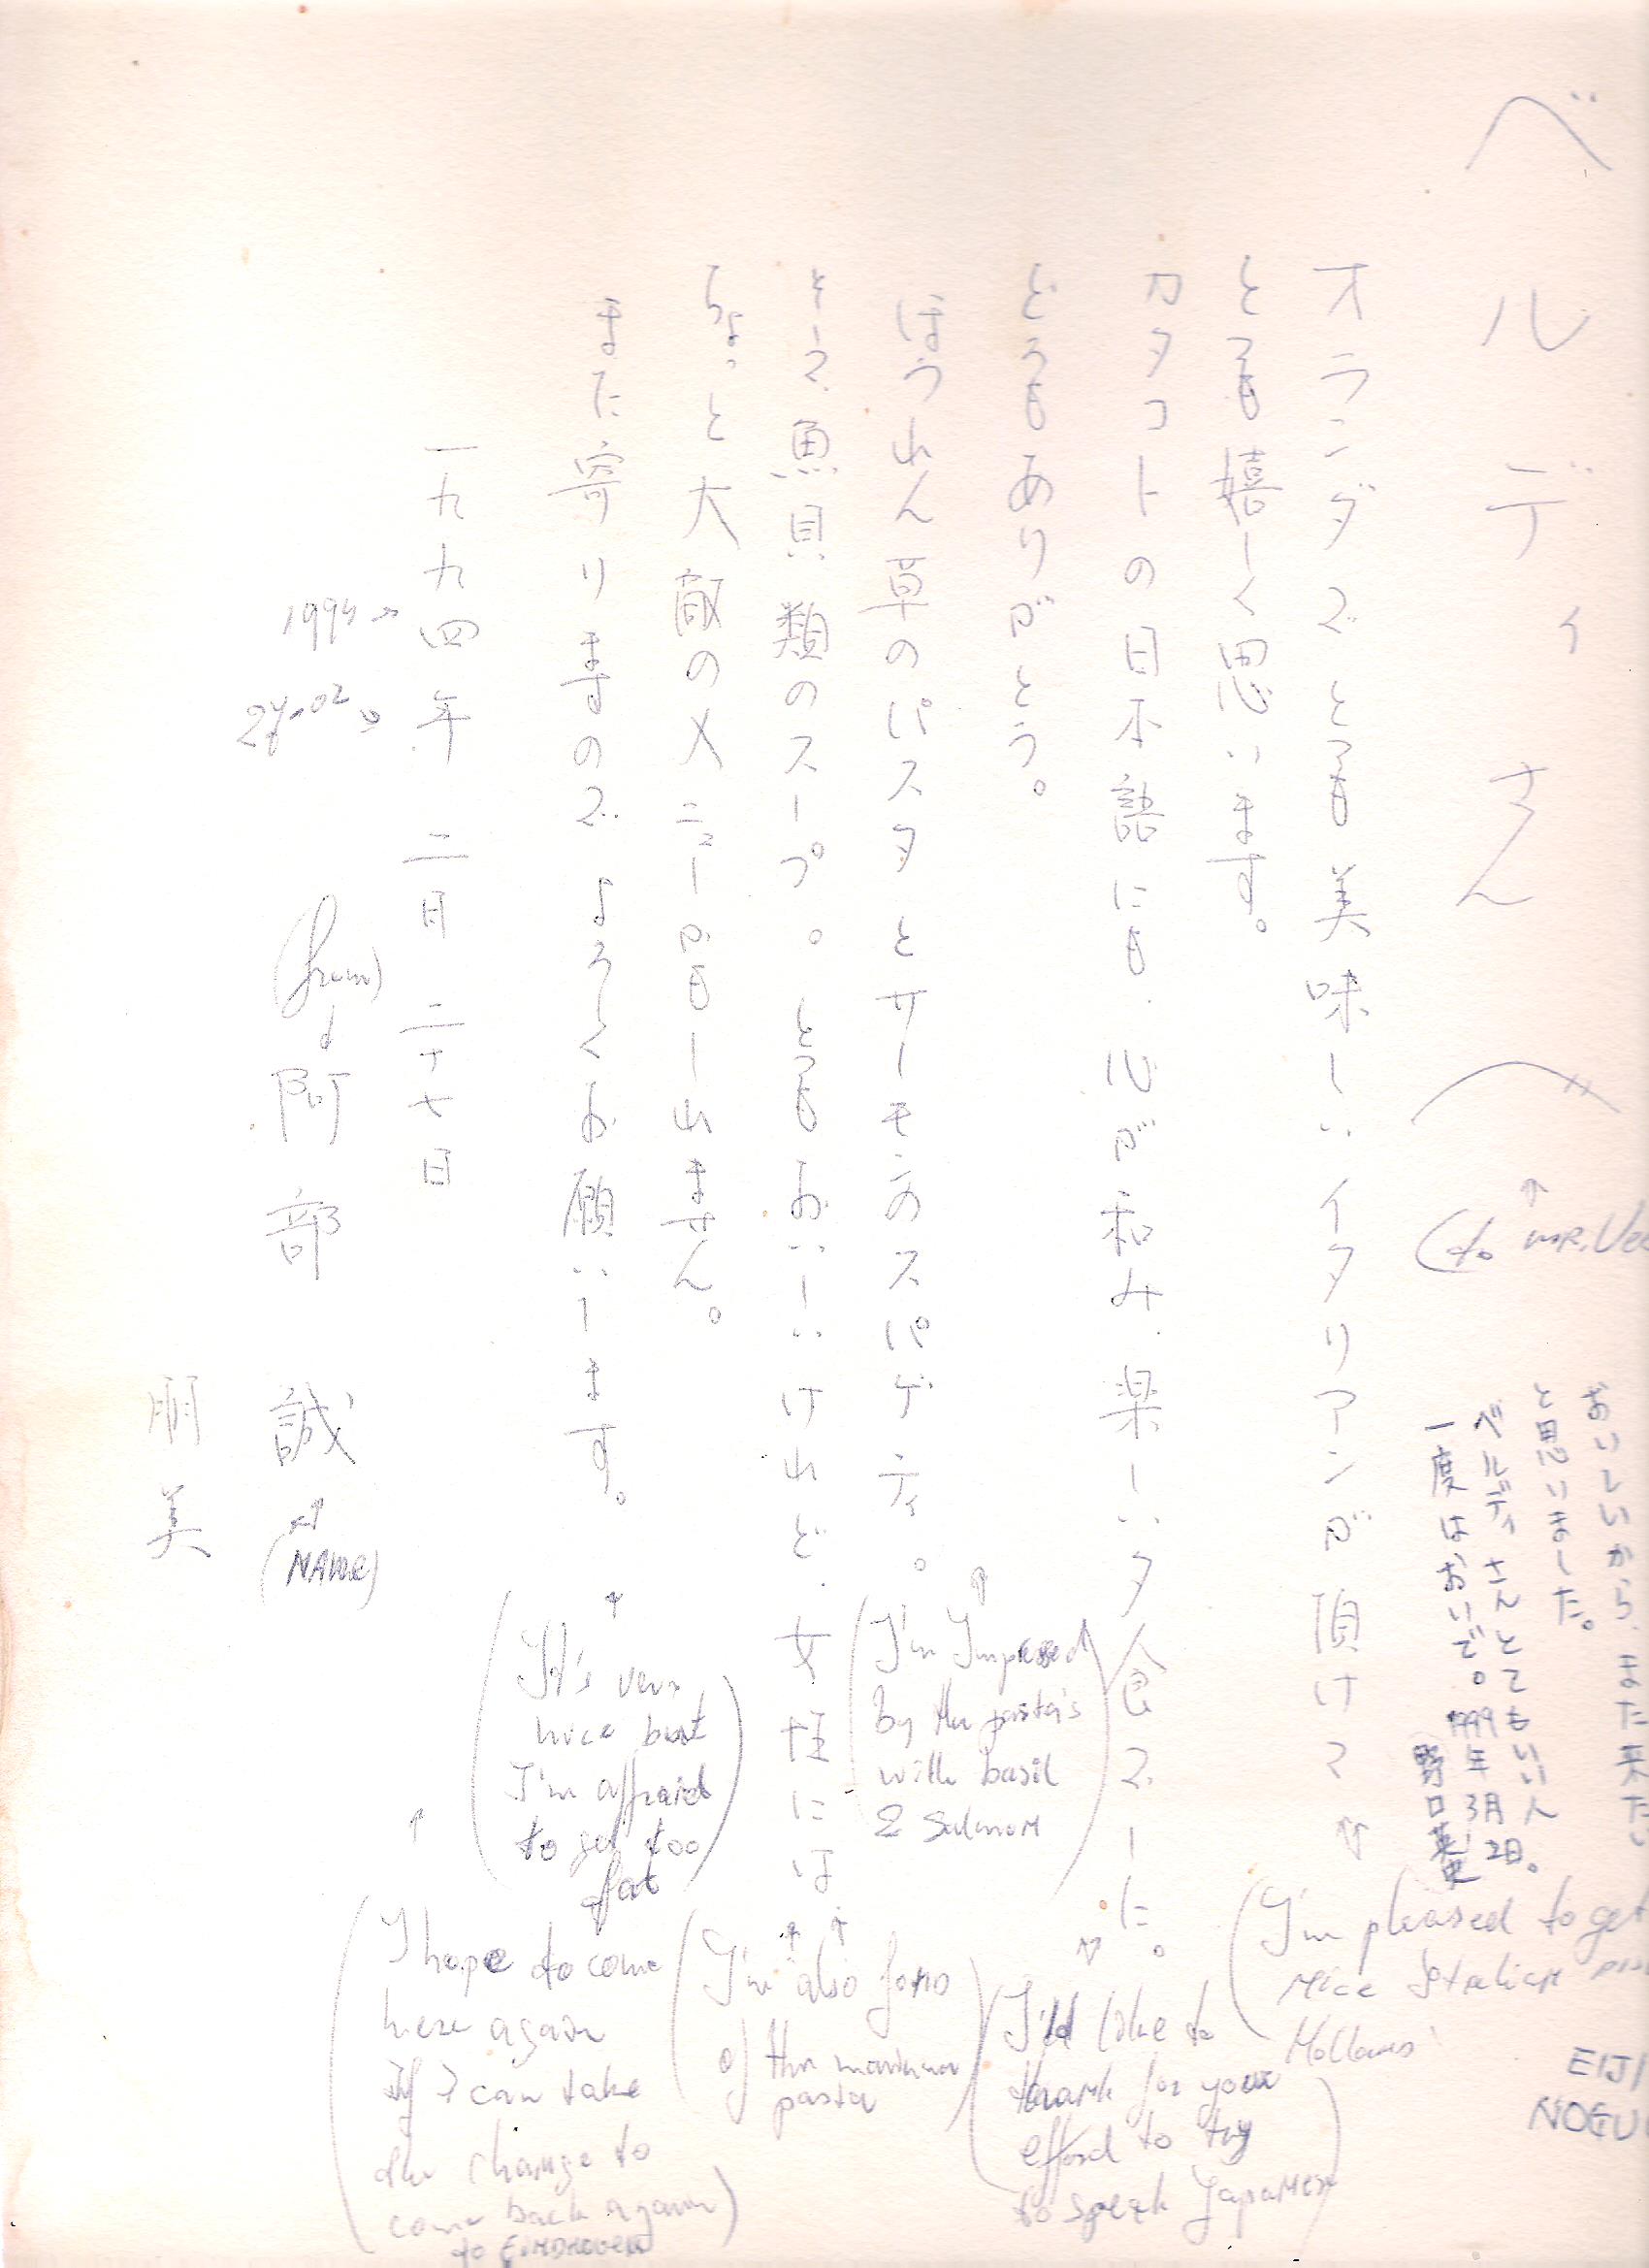 ベルディさんへ
オランダでとても美味しいイタリアンが頂けて
とても嬉しく思います。
カタコトの日本語にも、心が和み、楽しい夕食でした。
どうもありがとう。
ほうれん草のパスタとサーモンのスパゲティ。
そして魚貝類のスープ。とてもおいしいけれど、女性には
ちょっと大敵のメニューかもしれません。
また寄りますので、よろしくお願いします。
一九九四年 二月 二十七日
阿部 誠
朋美
(to MR.
おいしいから、また来たい
と思いました。
ベルディさんとてもいい人
一度はおいで。1999年3月2日。
野口英史
EIJI
NOGU
(I'm pleased to get
nice Italian
(I'ld like to
thank for your
efford to try
to speak Japanese
(I'm Impressed
by the pasta's
with basil
& Salmon
(I'm also fond
of the marinara
pasta
(It's very
nice but
I'm affraid
to get too
fat
(I hope to come
here again
if I can take
the change to
come back again)
to EINDHOVEN
1994
27-02
(from)
(NAME)